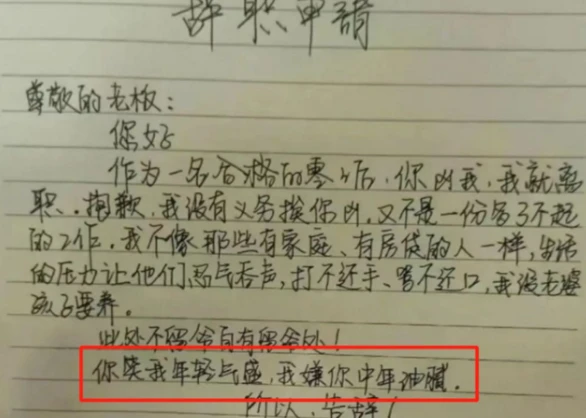 辞职申请
尊敬的老板：
你好
作为一名合格的零0后，你凶我，我就离
职。抱歉，我没有义务挨你凶，又不是一份多了不起
的工作，我不像那些有家庭、有房贷的人一样，生活
的压力让他们忍气吞声，打不还手、骂不还口，我没老婆
孩子要养。
此处不留爷自有留爷处！
你笑我年轻气盛，我嫌你中年油腻。
所以，告辞！